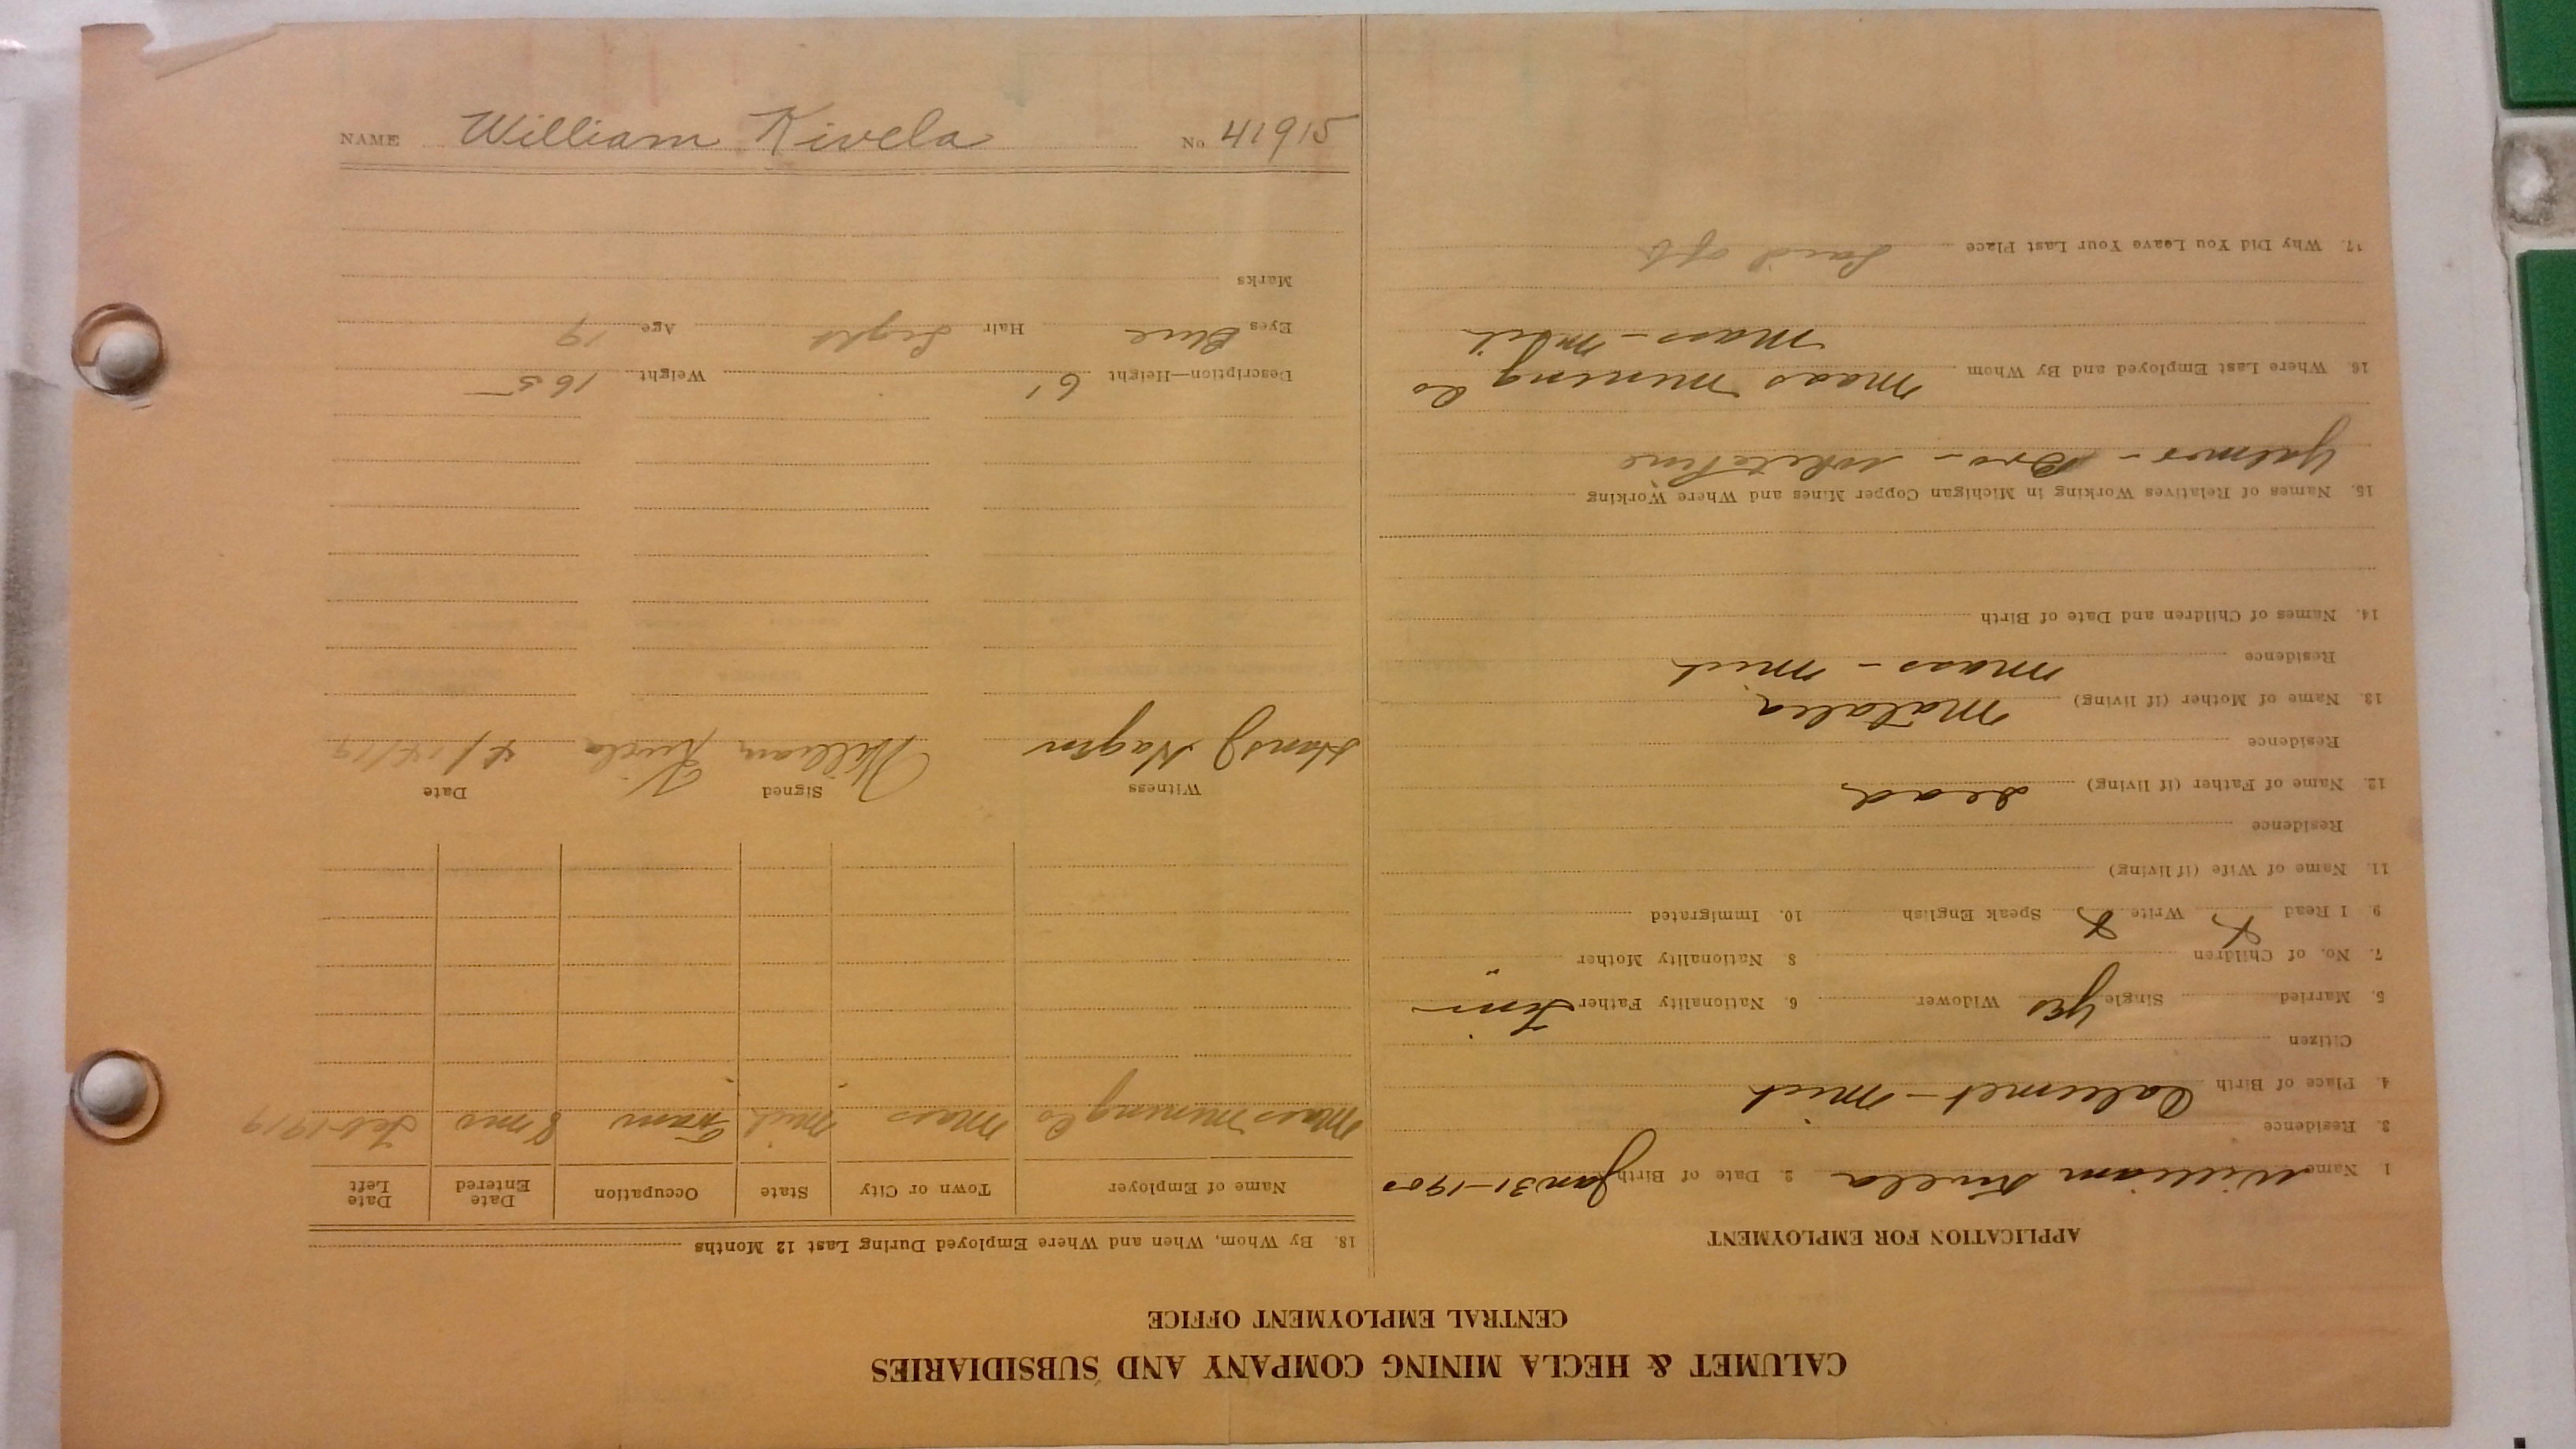 CALUMET & HECLA MINING COMPANY AND SUBSIDIARIES
CENTRAL EMPLOYMENT OFFICE
APPLICATION FOR EMPLOYMENT
1 Name William Kivela 2. Date of Birth Jan 31-1900
3. Residence
4. Place of Birth Calumet - Mich
Citizen
5. Married Single yes Widower 6. Nationality Father Finn
7. No. of Children 8. Nationality Mother "
9 I Read X Write X Speak English 10. Immigrated
11. Name of Wife (if living)
Residence
12. Name of Father (if living) Dead
Residence
13. Name of Mother (if living) Matalia
Residence Mass - Mich
14. Names of Children and Date of Birth
15. Names of Relatives Working in Michigan Copper Mines and Where Working
Yalmer - Bro - White Pine
16. Where Last Employed and By Whom Mass Mining Co
Mass - Mich
17. Why Did You Leave Your Last Place Laid off
18. By Whom, When and Where Employed During Last 12 Months
Name of Employer Town or City State Occupation Date Entered Date Left
Mass Mining Co Mass Mich Tram 8 mos Feb-1919
Witness Signed Date
Hans J Nagen William Kivela 4/14/19
Description—Height 6' Weight 165
Eyes Blue Hair Light Age 19
Marks
NAME William Kivela No 41915